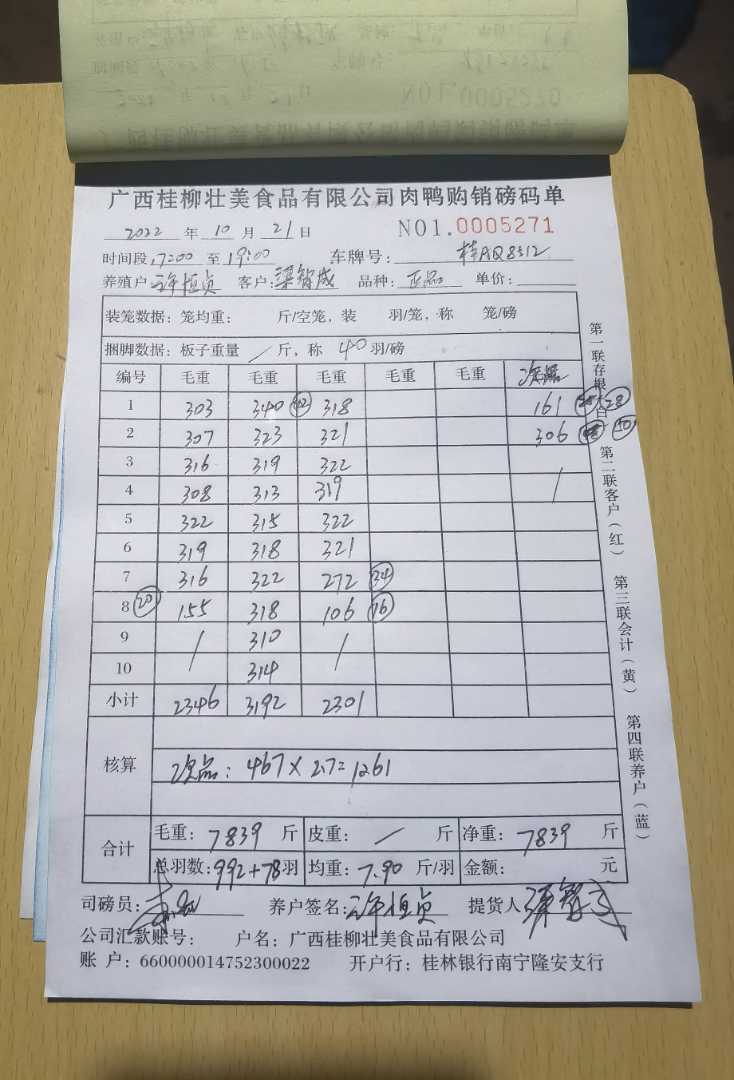 广西桂柳壮美食品有限公司肉鸭购销磅码单
2022 年 10 月 21 日 NO1.0005271
时间段:17:00 至 19:00 车牌号: 桂AQ8312
养殖户 许恒贞 客户: 梁智成 品种: 正品 单价:
装笼数据: 笼均重: 斤/空笼, 装 羽/笼, 称 笼/磅
捆脚数据: 板子重量 / 斤, 称 40 羽/磅
编号 毛重 毛重 毛重 毛重 毛重 次品
1 303 340 42 318 161 28
2 307 323 321 306 50
3 316 319 322
4 308 313 319 /
5 322 315 322
6 319 318 321
7 316 322 272 34
8 20 155 318 106 16
9 / 310 /
10 314
小计 2346 3192 2301
核算 次品: 467×2.7=1261
合计 毛重: 7839 斤 皮重: / 斤 净重: 7839 斤
总羽数: 992+78 羽 均重: 7.90 斤/羽 金额: 元
司磅员: 养户签名: 许恒贞 提货人
公司汇款账号: 户名: 广西桂柳壮美食品有限公司
账 户: 660000014752300022 开户行: 桂林银行南宁隆安支行
第一联存根(白)
第二联客户(红)
第三联会计(黄)
第四联养户(蓝)